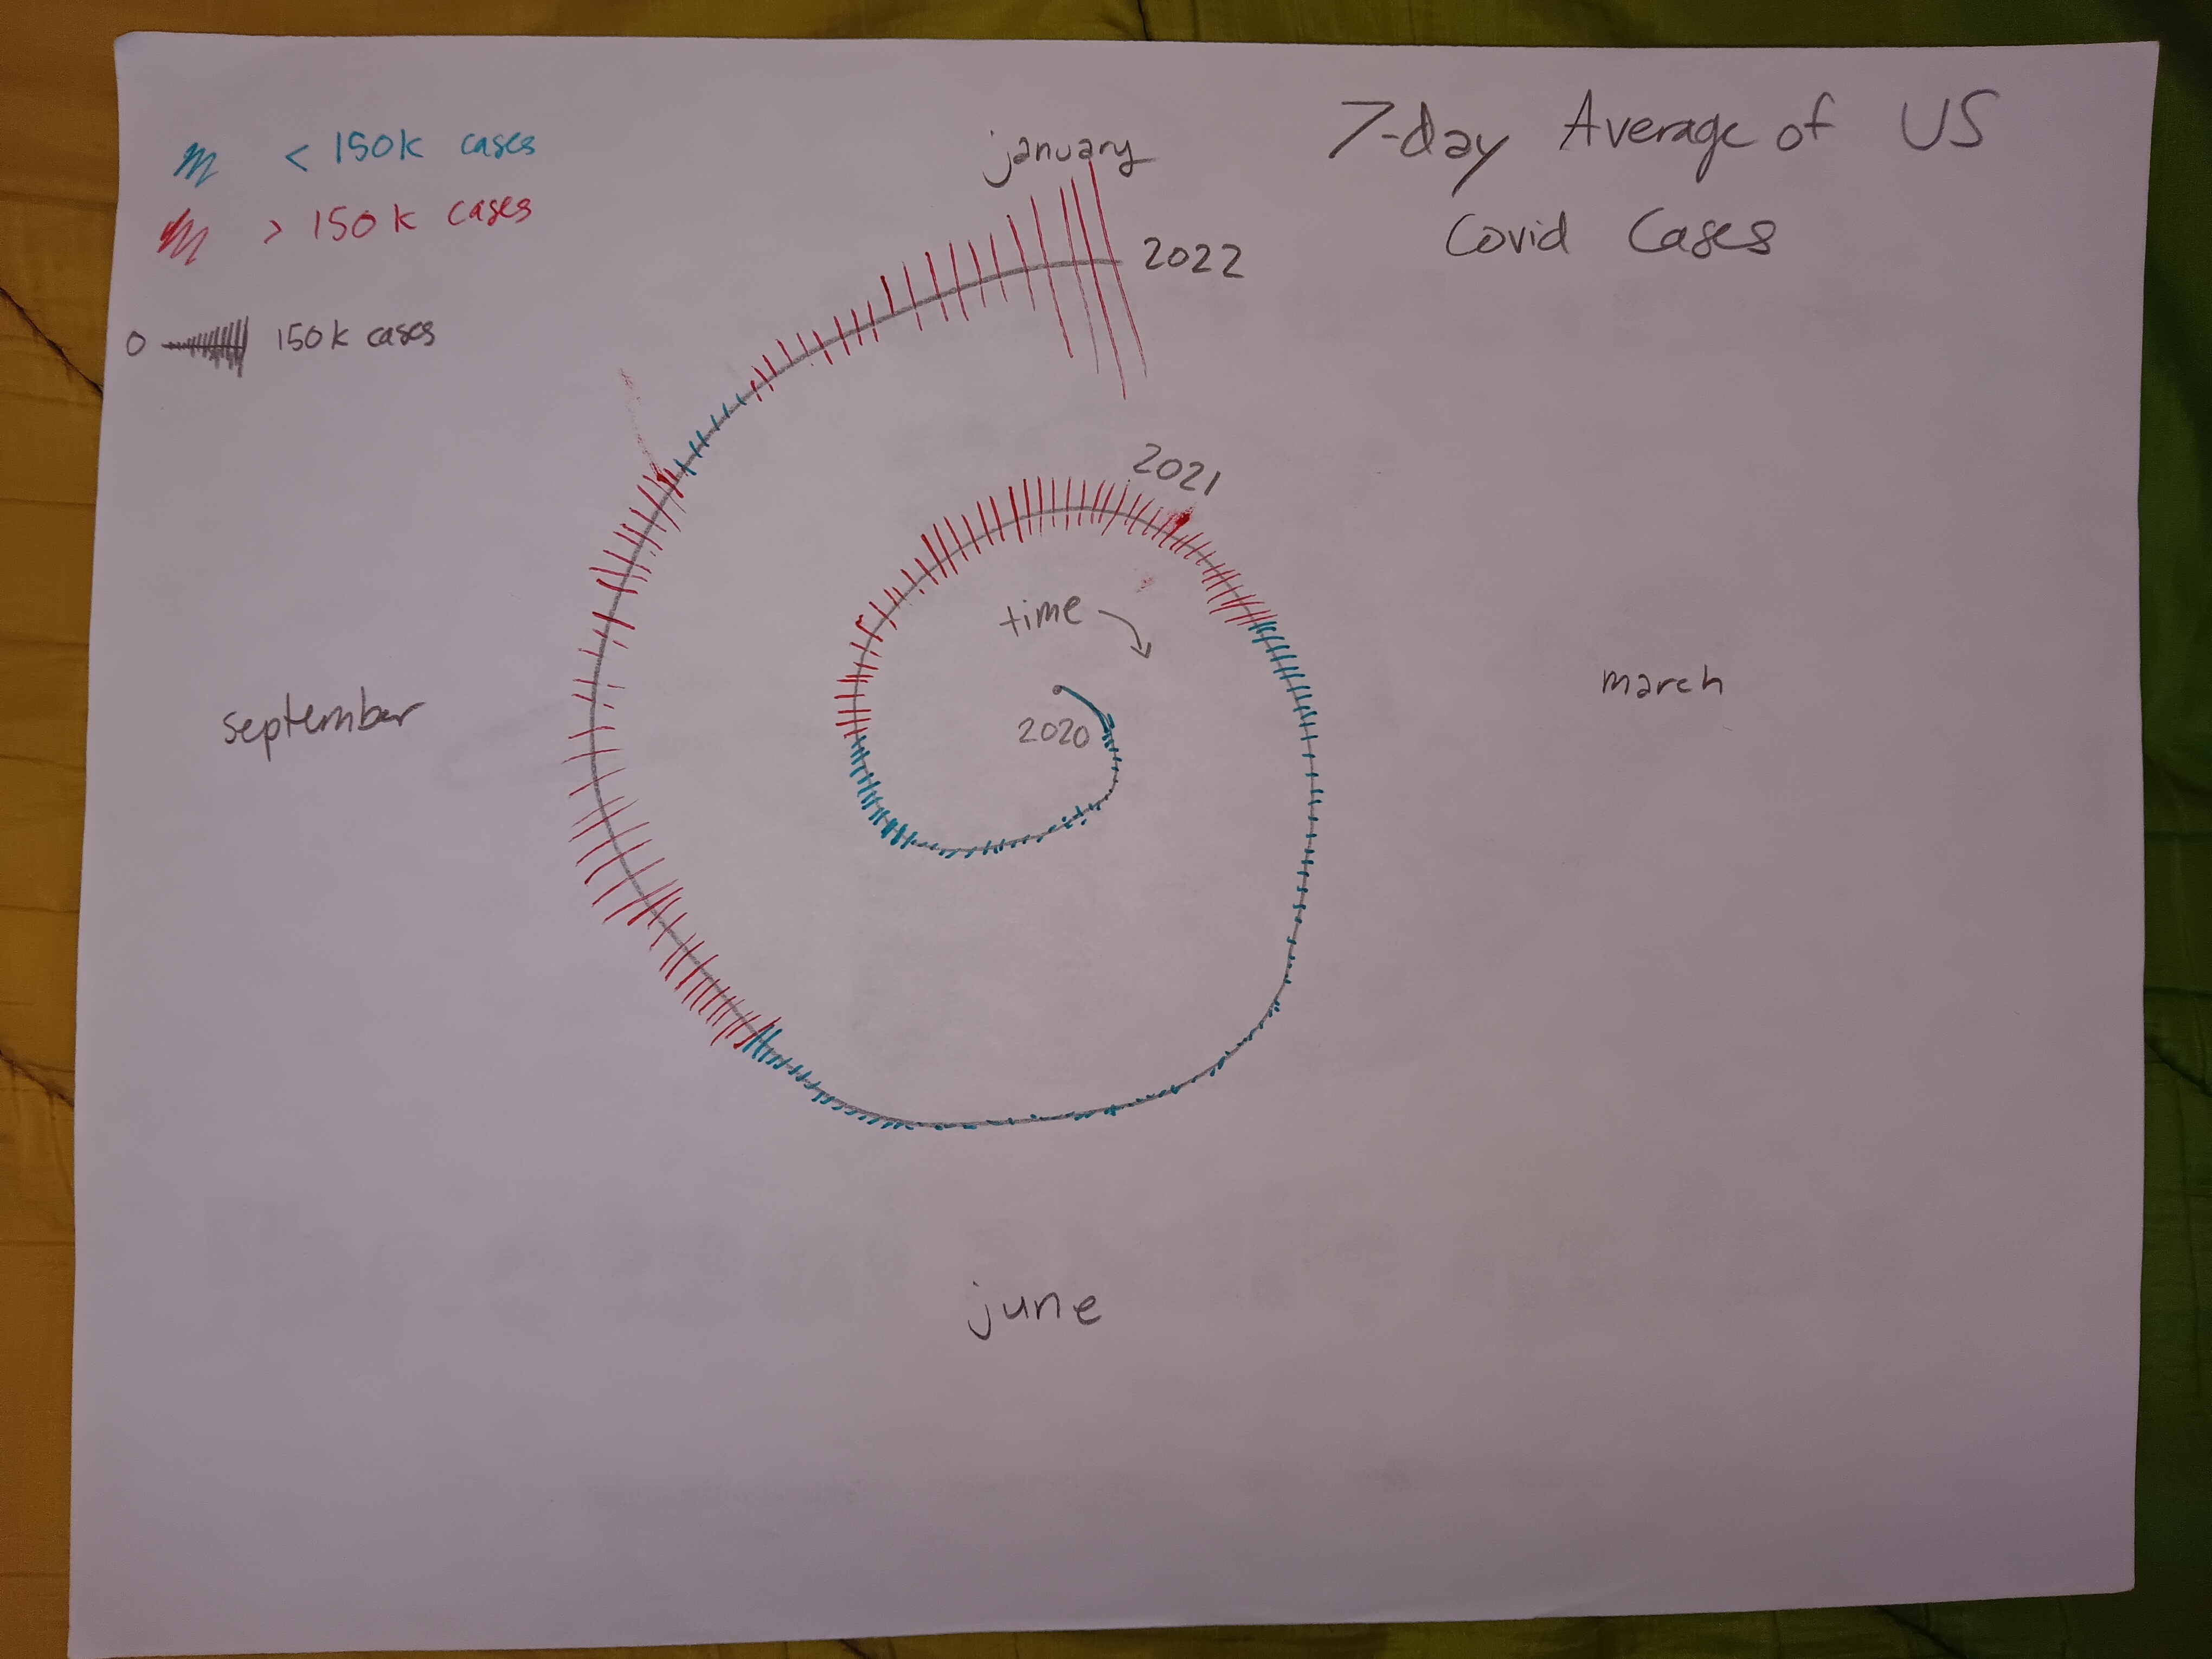 7-day Average of US
Covid Cases
< 150k cases
> 150k cases
0 150k cases
january
2022
2021
time
2020
march
september
june